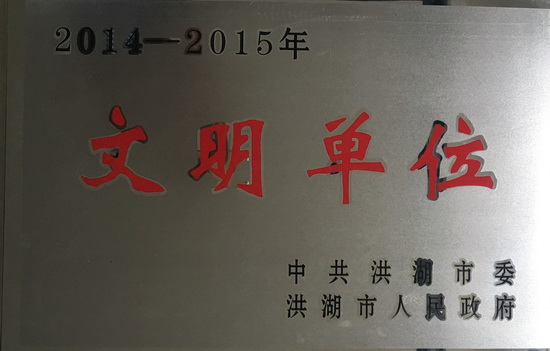 2014—2015年
文明单位
中共洪湖市委
洪湖市人民政府